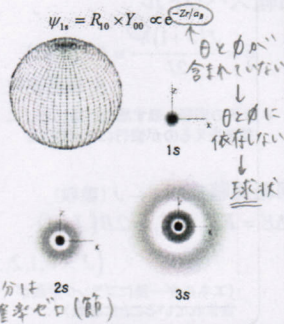 ψ₁ₛ = R₁₀ × Y₀₀ ∝ e^(-Zr/a_B)
θとφが
含まれていない
↓
θとφに
依存しない
↓
球状
z
x
1s
z
x
2s
z
x
3s
分は
確率ゼロ(節)